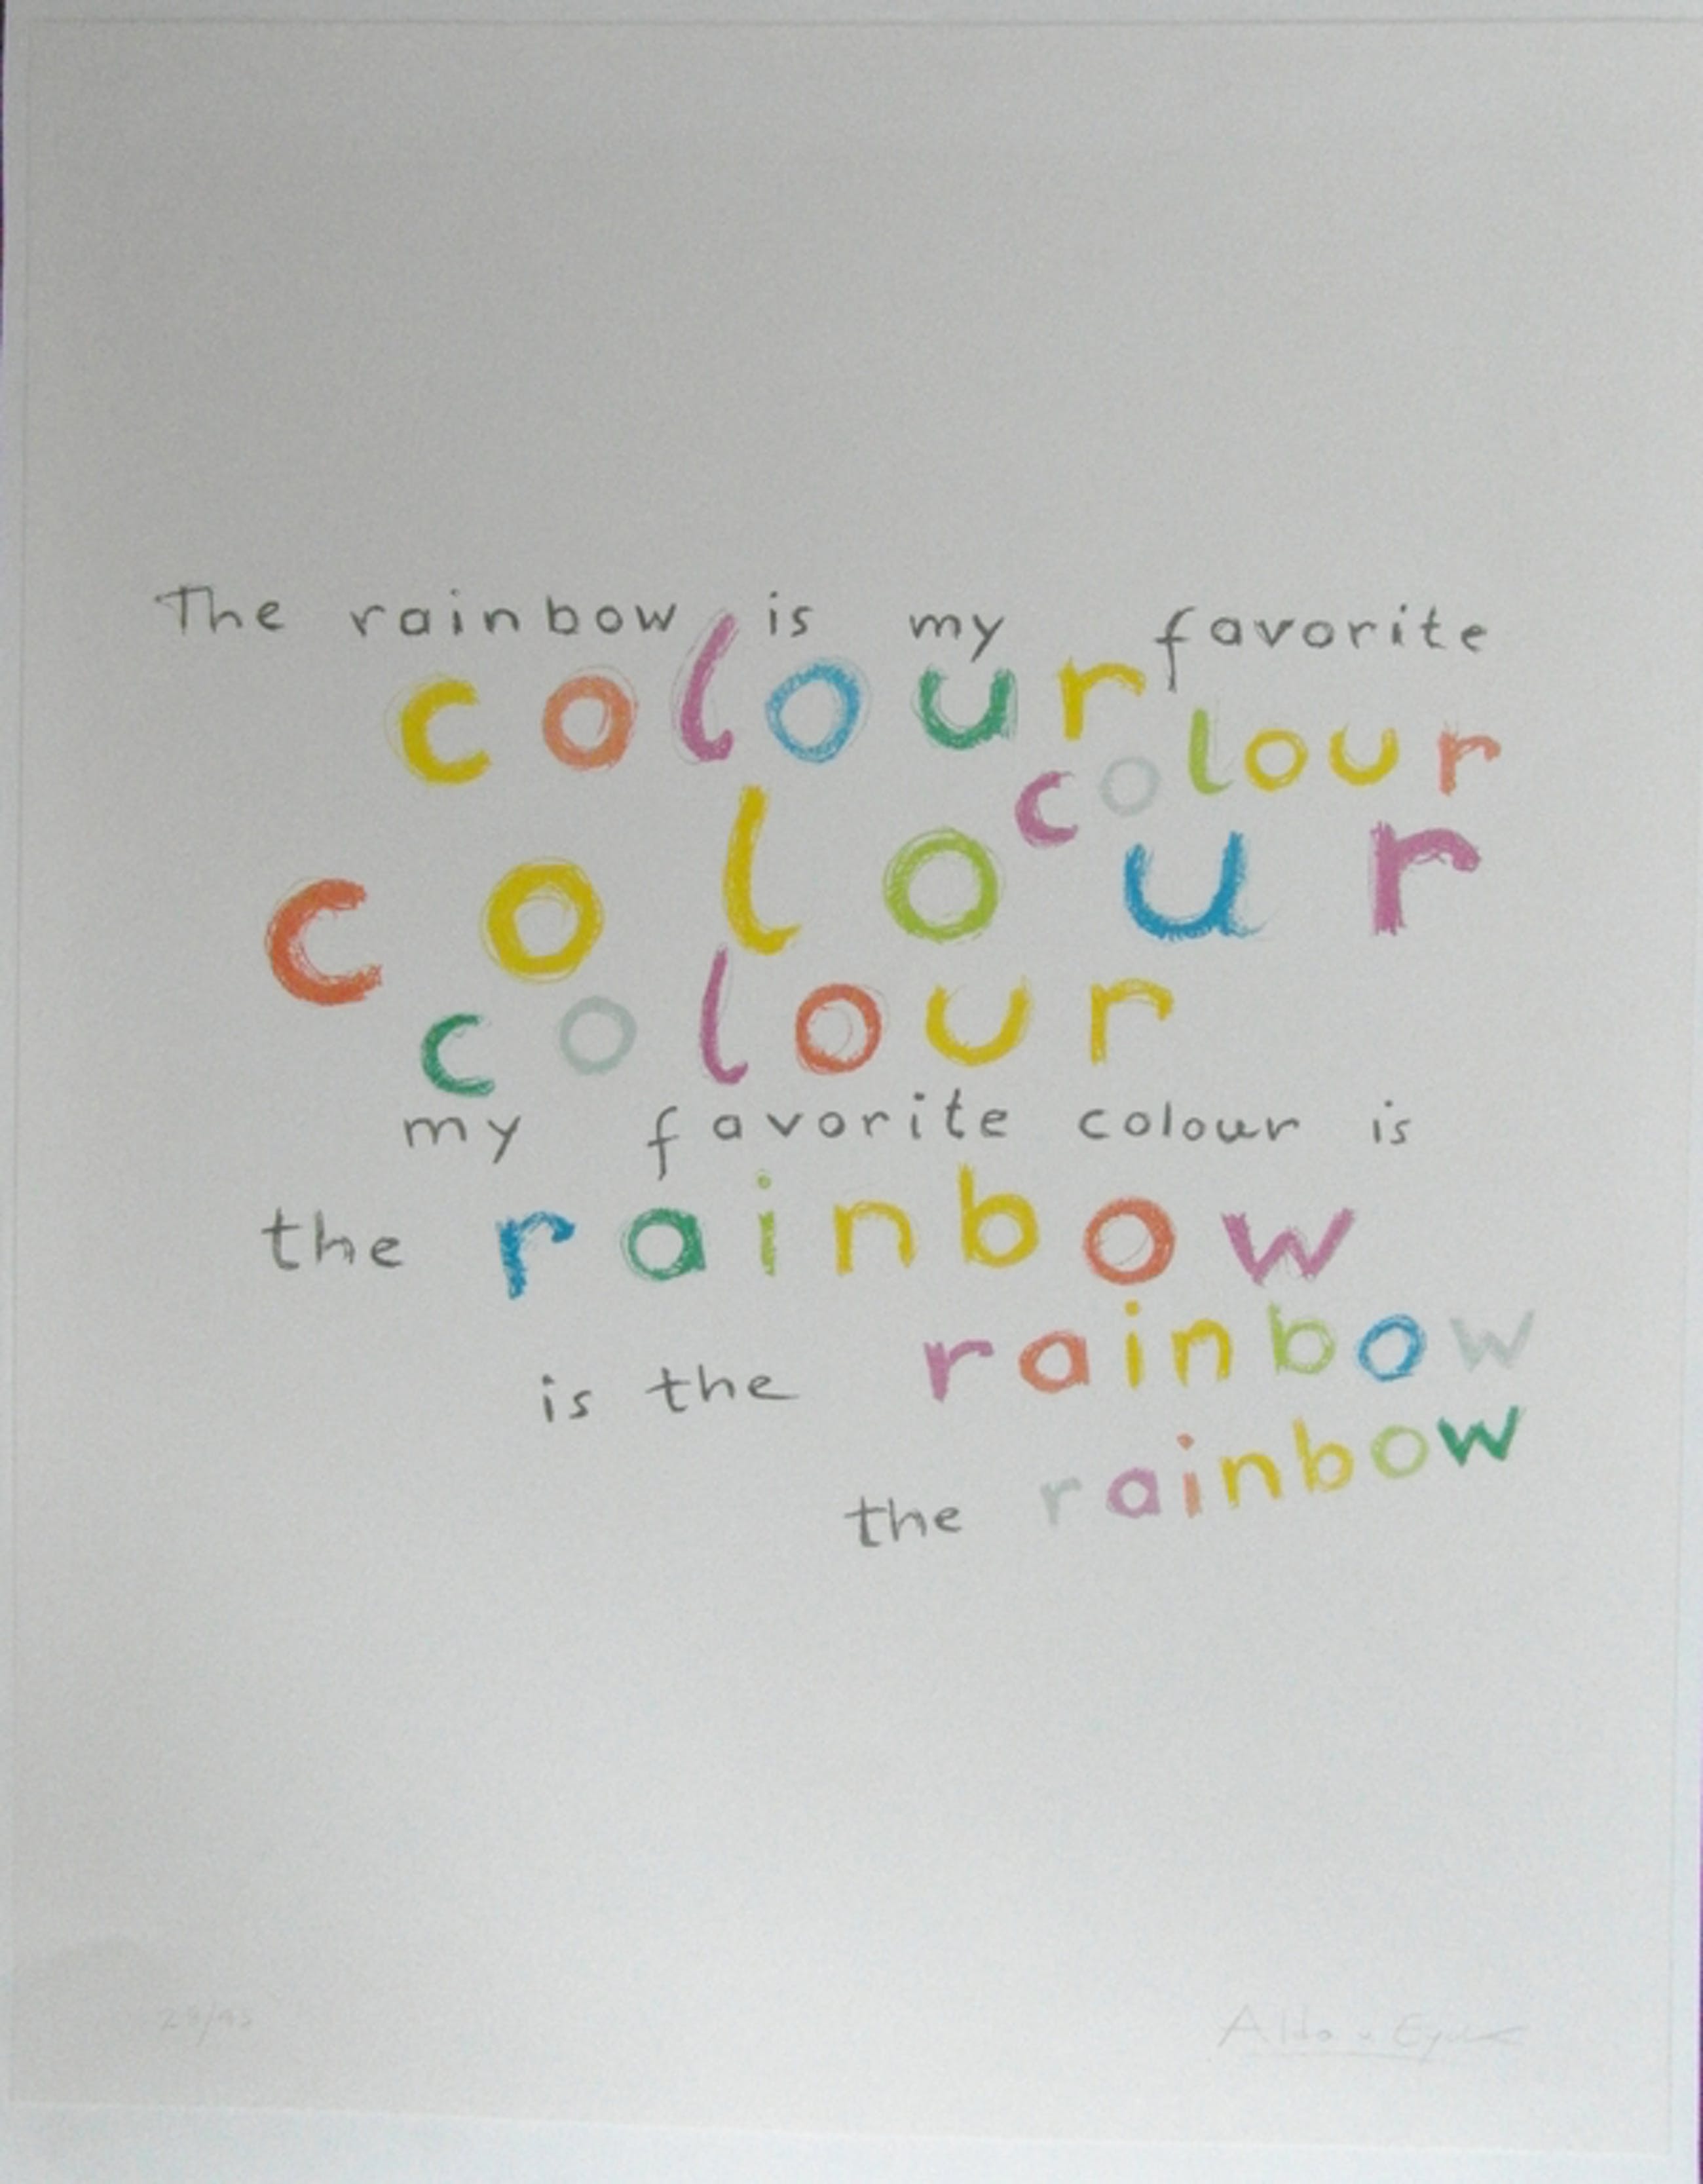 The rainbow is my favorite
colour
colour
colour
colour
my favorite colour is
the rainbow
is the rainbow
the rainbow
Aldo v Eyck